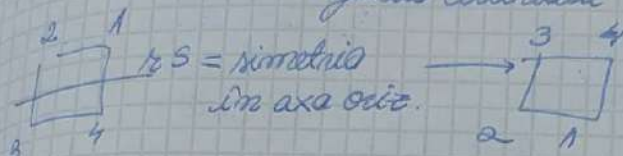 2 1
rS = simetria
in axa oriz.
3 4
3 4
2 1